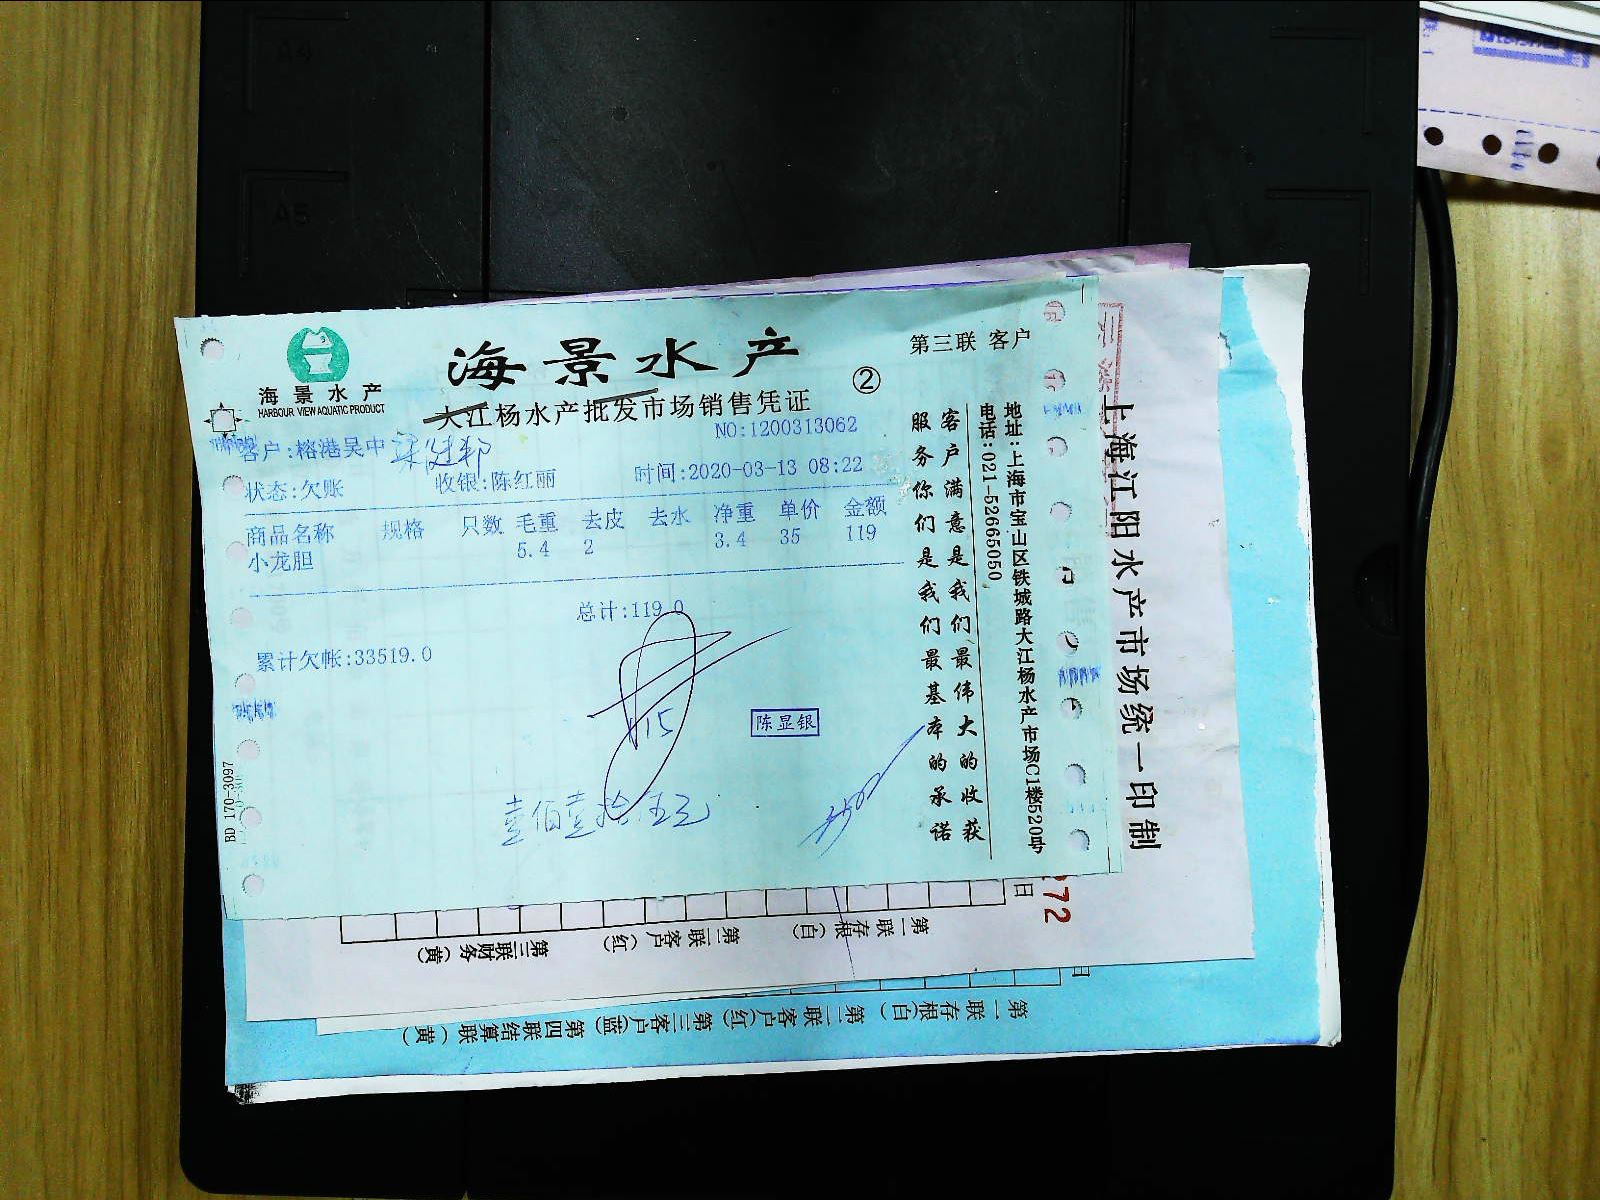 海景水产
HARBOUR VIEW AQUATIC PRODUCT
海景水产
大江杨水产批发市场销售凭证
②
第三联 客户
NO:1200313062
客户:榕港吴中
状态:欠账 收银:陈红丽 时间:2020-03-13 08:22
商品名称 规格 只数 毛重 去皮 去水 净重 单价 金额
小龙胆 5.4 2 3.4 35 119
总计:119.0
累计欠帐:33519.0
115
陈显银
壹佰壹拾伍元
BD 170-3097
客户满意是我们最伟大的收获
服务你们是我们最基本的承诺
地址:上海市宝山区铁城路大江杨水产市场C1楼520号
电话:021-52665050
上海江阳水产市场统一印制
日
72
第一联存根(白)
第二联客户(红)
第三联财务(黄)
日
第一联存根(白) 第二联客户(红) 第三客户(蓝) 第四联结算联(黄)
A4
A5